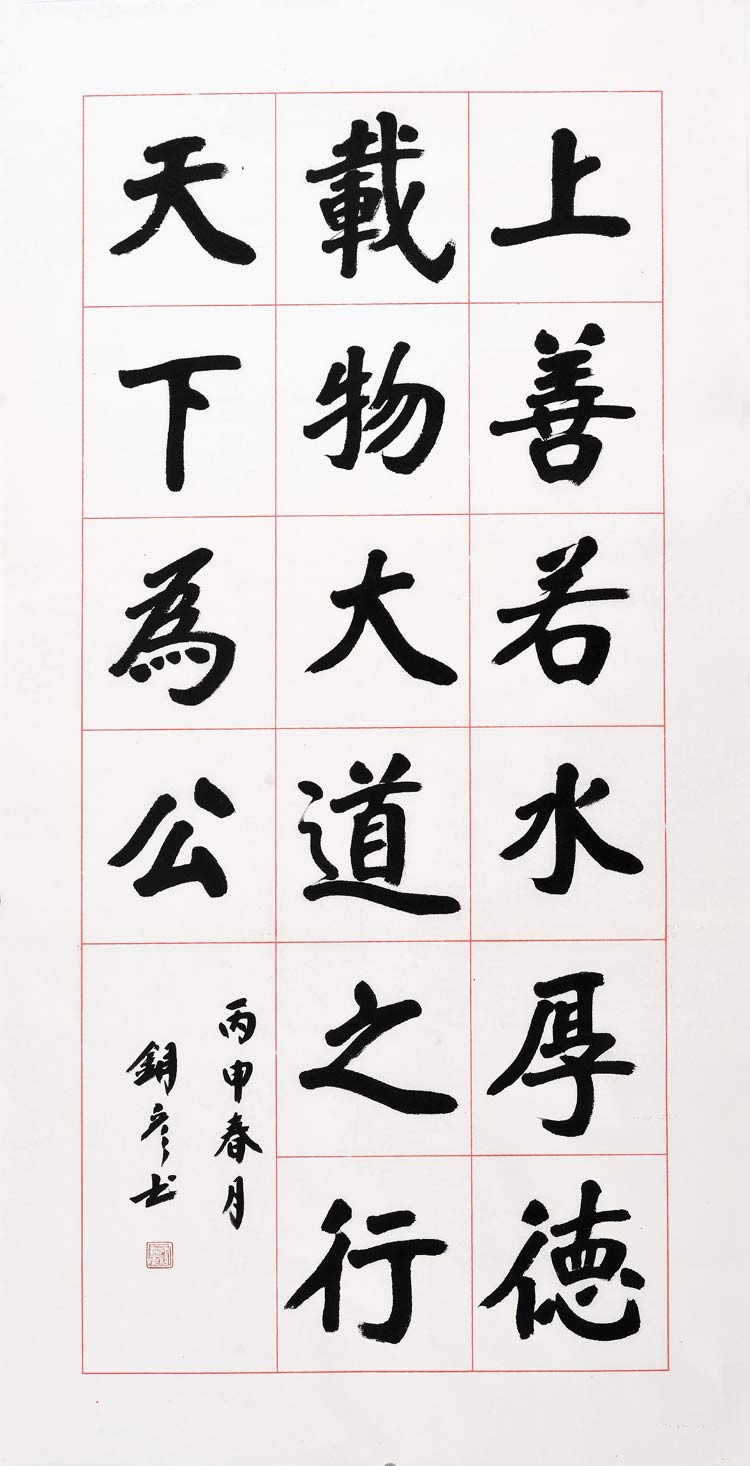 上善若水厚德
載物大道之行
天下為公
丙申春月
銷彥书